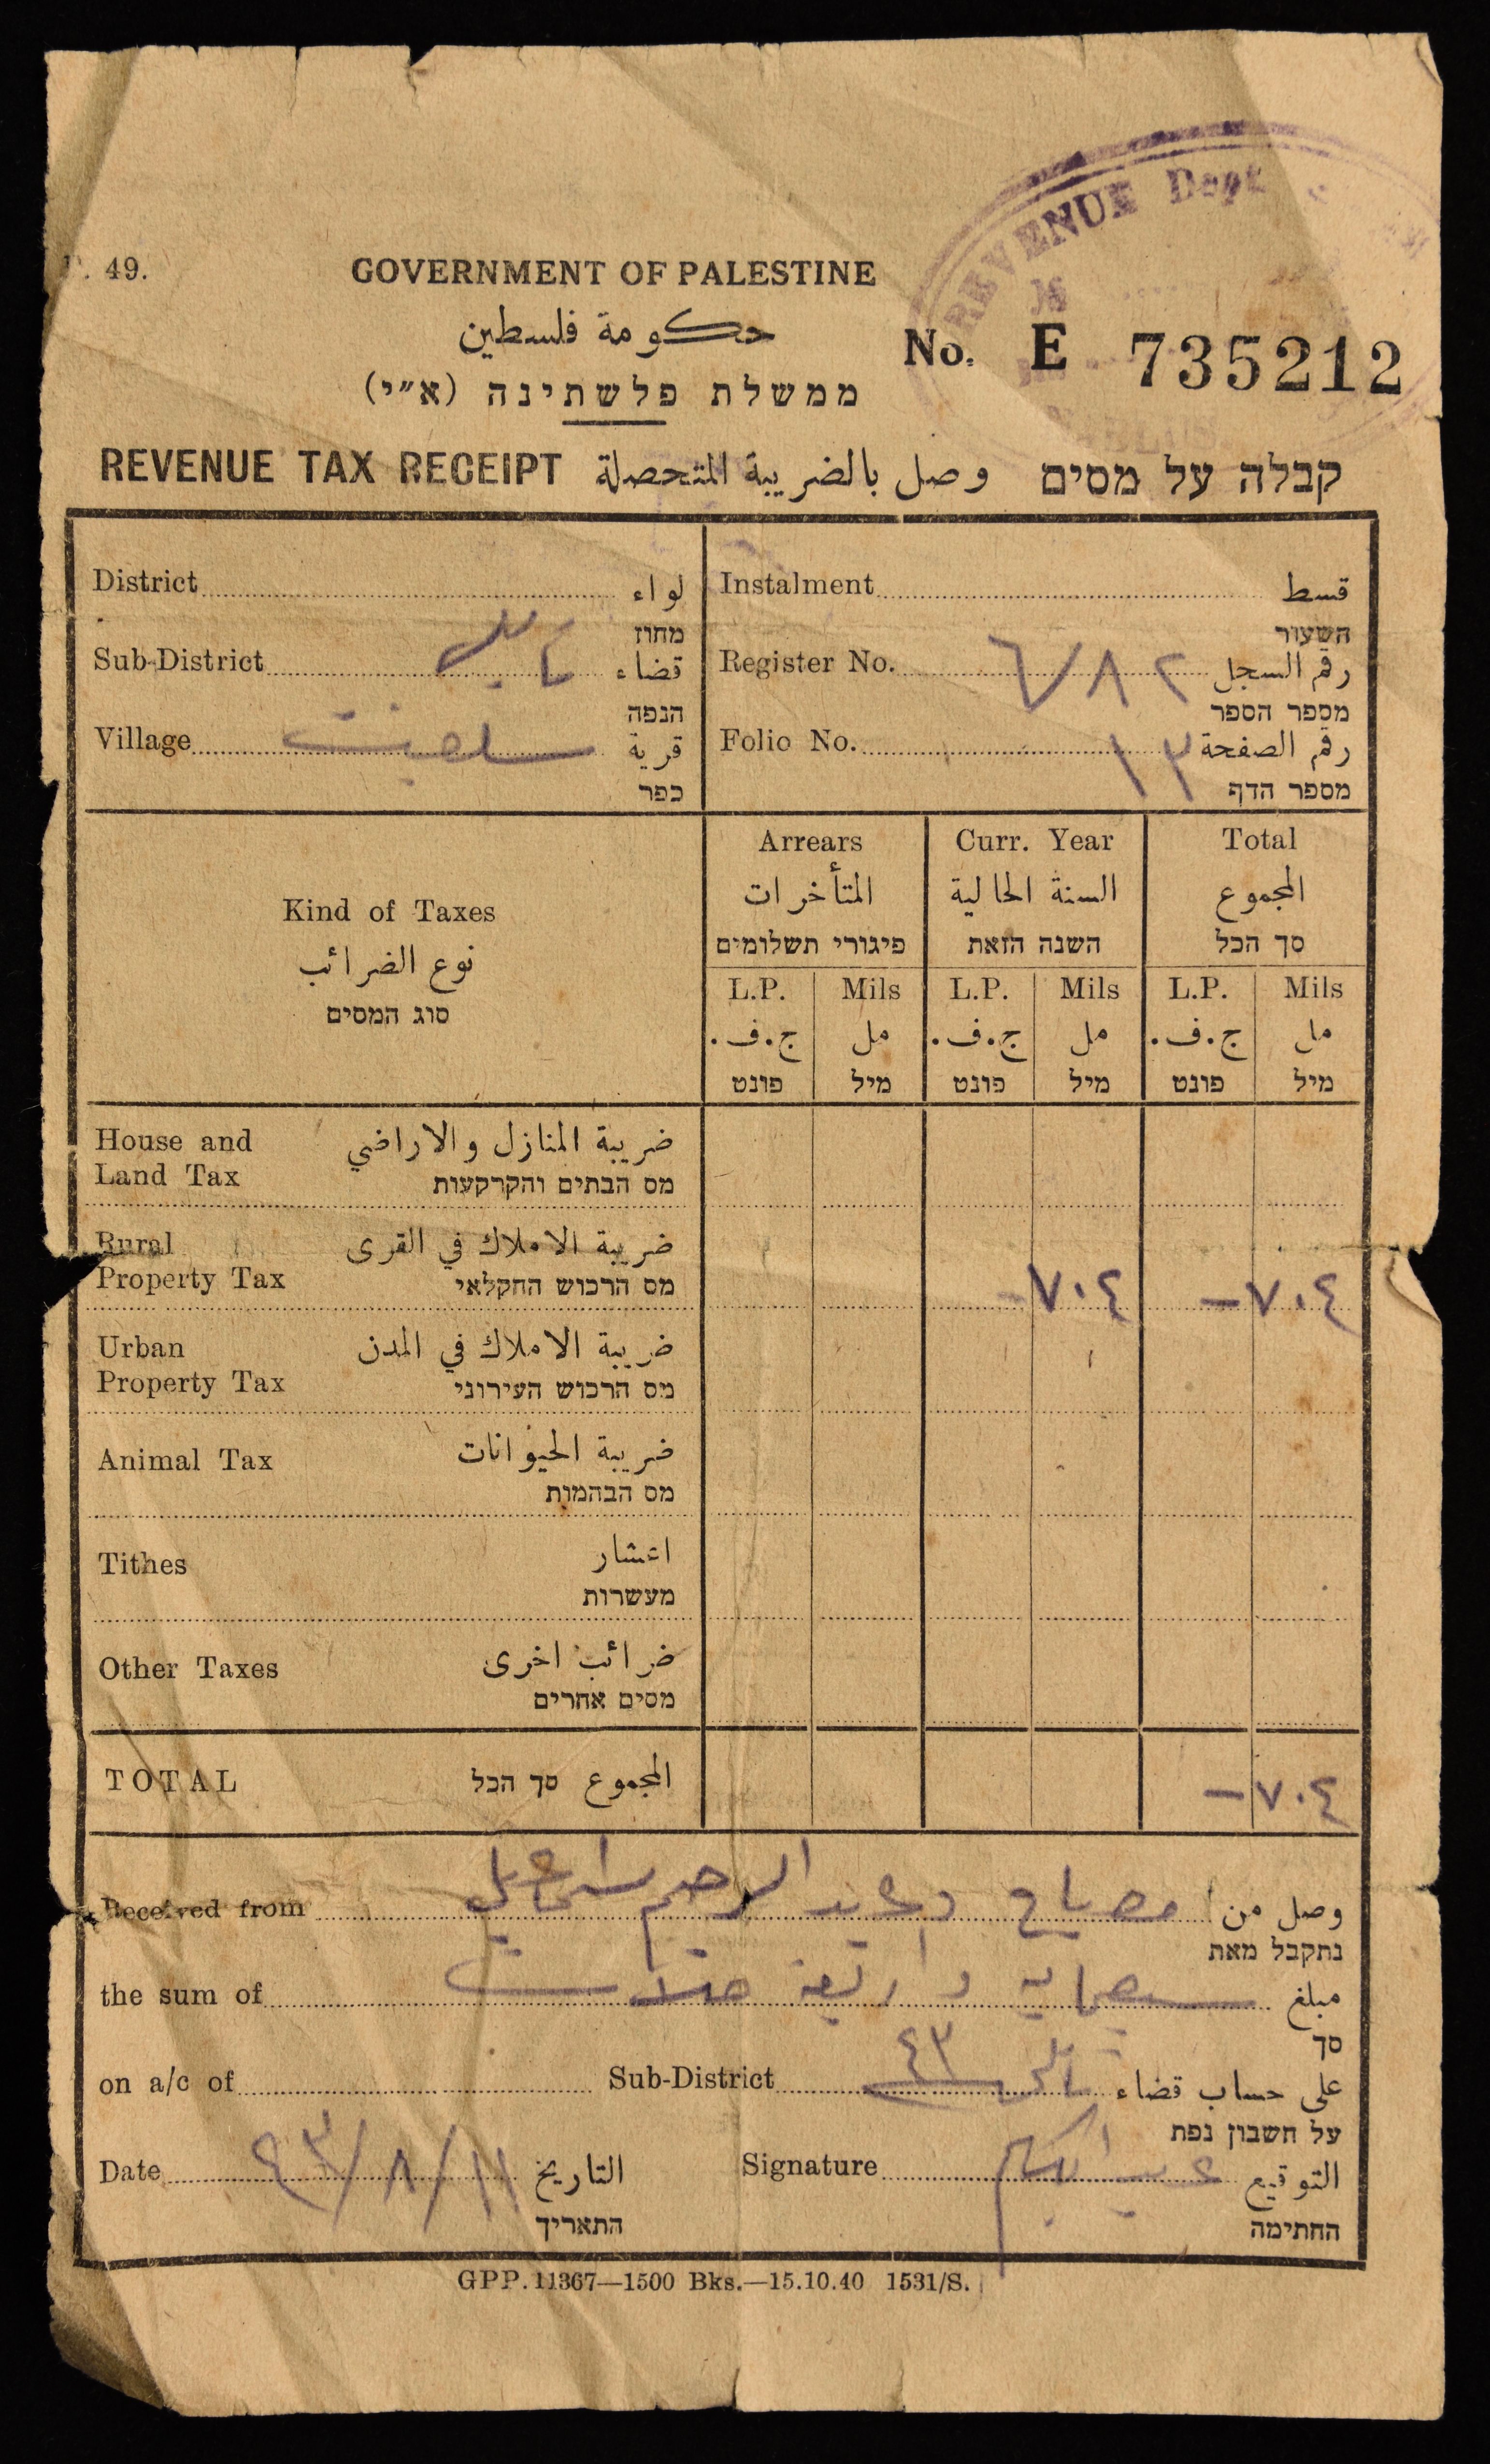 REVENUE Dept
49.
GOVERNMENT OF PALESTINE
حكومة فلسطين
No. E 735212
ממשלת פלשתינה (א״י)
REVENUE TAX RECEIPT وصل بالضريبة المتحصلة קבלה על מסים
District لواء
מחוז
Sub-District نابلس قضاء
הנפה
Village سلفيت قرية
כפר
Instalment قسط
השעור
Register No. ٦٧٨٢ رقم السجل
מספר הספר
Folio No. ١٣ رقم الصفحة
מספר הדף
Kind of Taxes
نوع الضرائب
סוג המסים
Arrears Curr. Year Total
المتأخرات السنة الحالية المجموع
פיגורי תשלומים השנה הזאת סך הכל
L.P. Mils L.P. Mils L.P. Mils
ج.ف. مل ج.ف. مل ج.ف. مل
פונט מיל פונט מיל פונט מיל
House and Land Tax ضريبة المنازل والاراضي
מס הבתים והקרקעות
Rural Property Tax ضريبة الاملاك في القرى
מס הרכוש החקלאי
-٧٠٤ -٧٠٤
Urban Property Tax ضريبة الاملاك في المدن
מס הרכוש העירוני
Animal Tax ضريبة الحيوانات
מס הבהמות
Tithes اعشار
מעשרות
Other Taxes ضرائب اخرى
מסים אחרים
TOTAL المجموع סך הכל -٧٠٤
Received from مصباح وعبد الرحيم اسماعيل وصل من
נתקבל מאת
the sum of سبعماية واربعة مبلغ
סך
on a/c of Sub-District نابلس ٤٣ على حساب قضاء
על חשבון נפת
Date ١١/٨/٤٣ التاريخ
התאריך
Signature التوقيع
החתימה
GPP. 11367—1500 Bks.—15.10.40 1531/S.